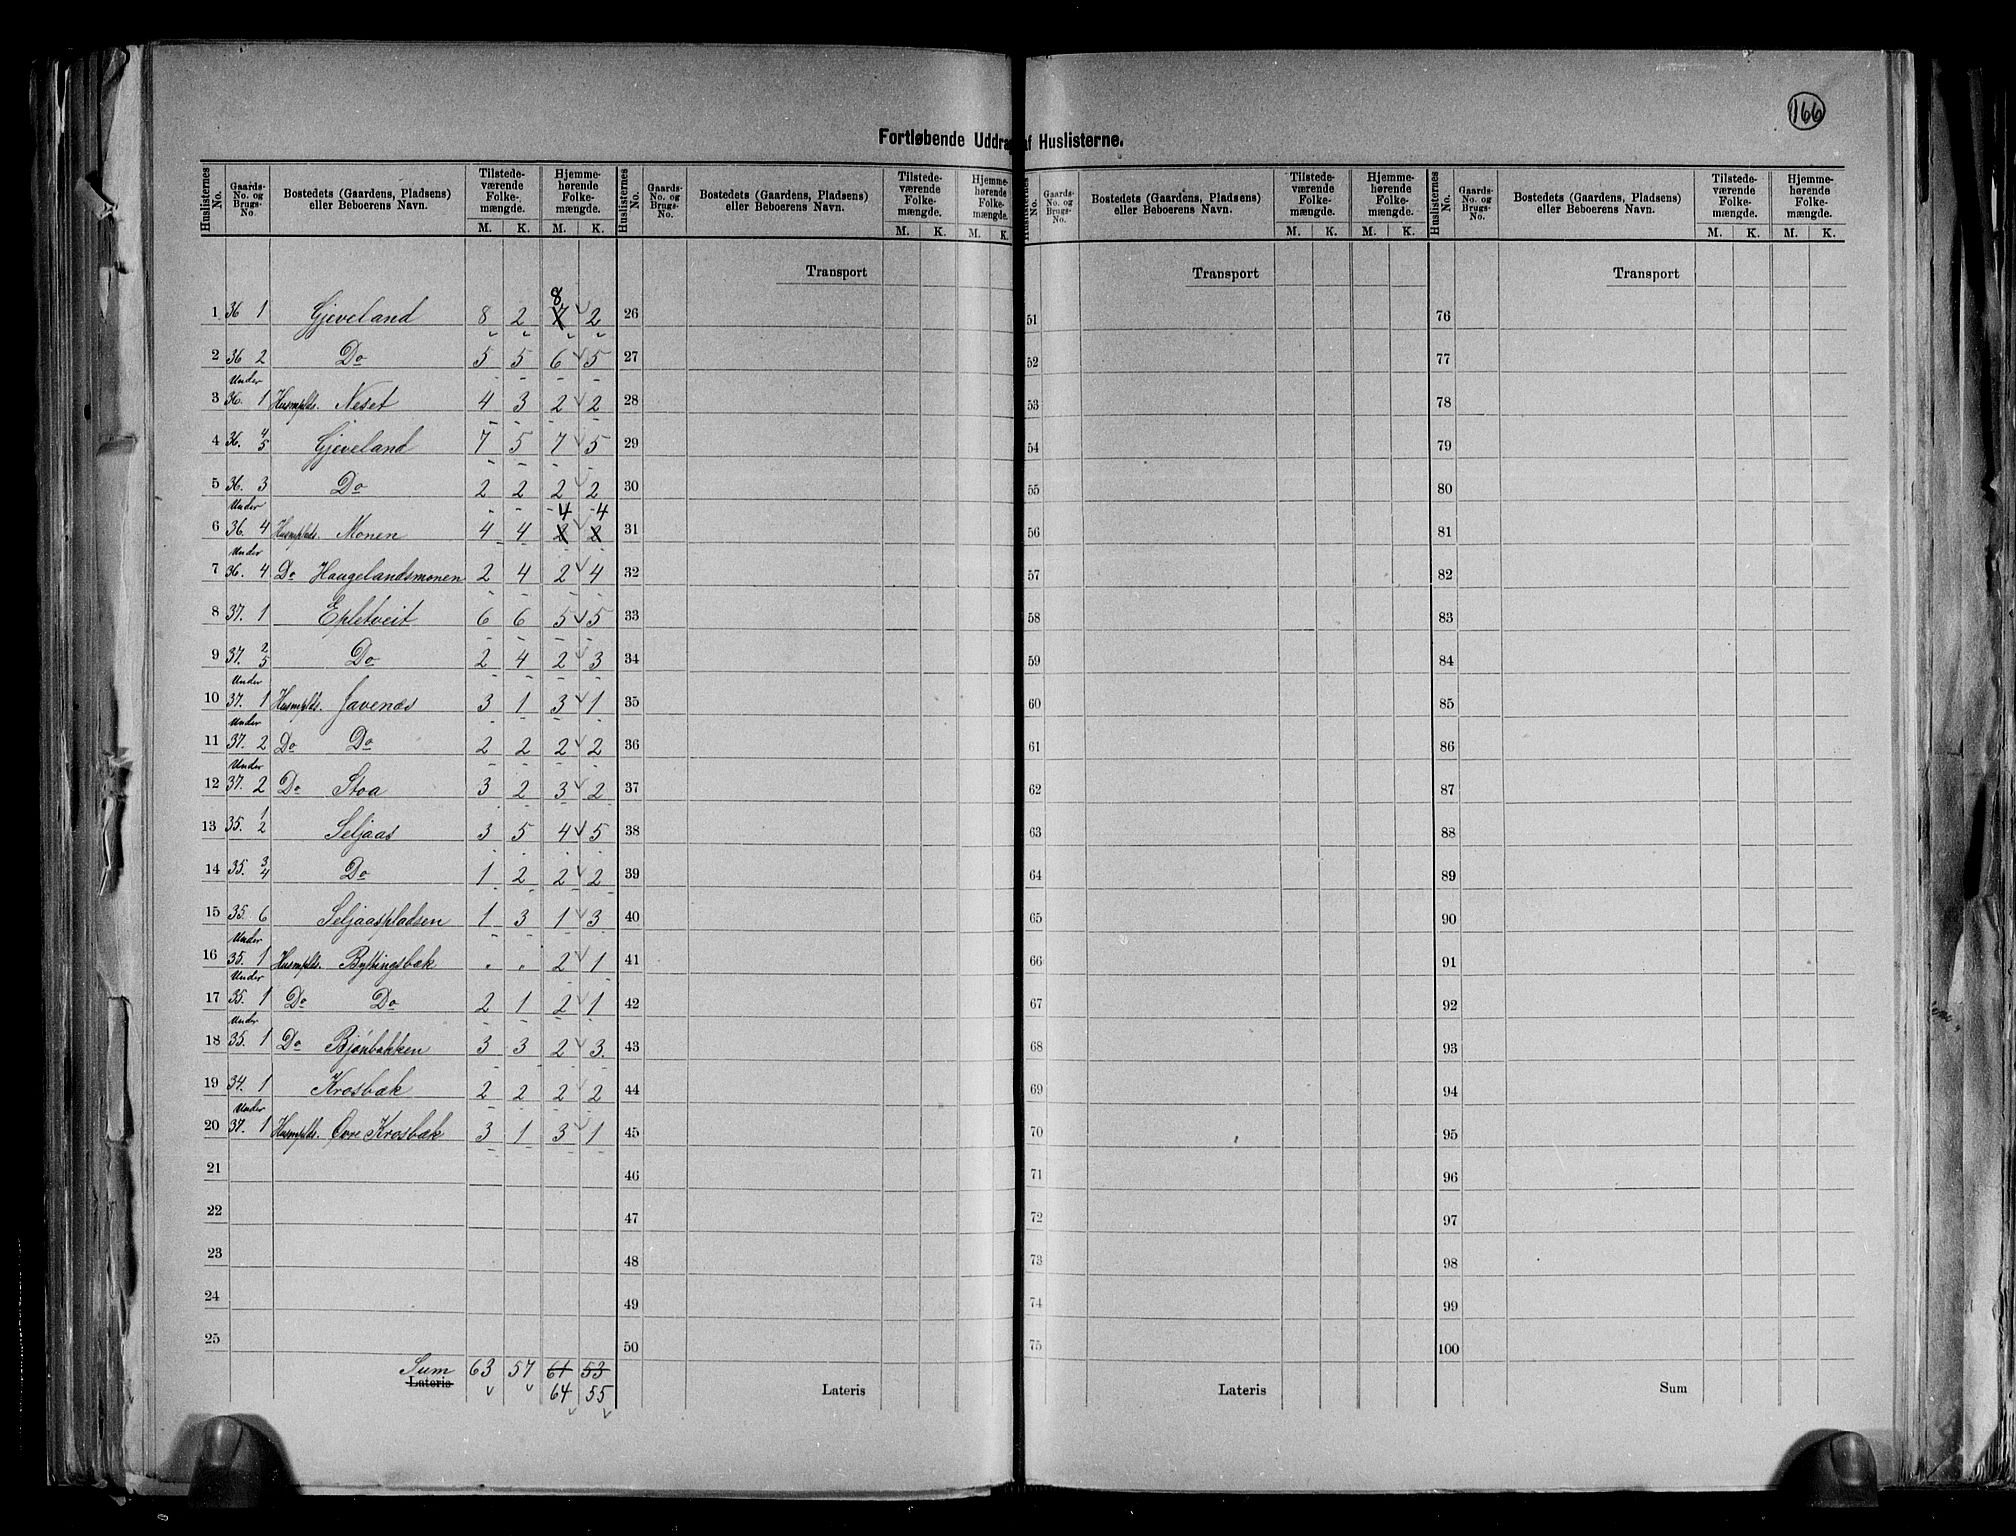 166
Fortløbende Uddra af Huslisterne.
Huslisternes No. Gaards-No. og Brugs-No. Bostedets (Gaardens, Pladsens) eller Beboerens Navn. Tilstedeværende Folkemængde. Hjemmehørende Folkemængde.
M. K. M. K.
Huslisternes No. Gaards-No. og Brugs-No. Bostedets (Gaardens, Pladsens) eller Beboerens Navn. Tilstedeværende Folkemængde. Hjemmehørende Folkemængde.
M. K. M. K.
Huslisternes No. Gaards-No. og Brugs-No. Bostedets (Gaardens, Pladsens) eller Beboerens Navn. Tilstedeværende Folkemængde. Hjemmehørende Folkemængde.
M. K. M. K.
Huslisternes No. Gaards-No. og Brugs-No. Bostedets (Gaardens, Pladsens) eller Beboerens Navn. Tilstedeværende Folkemængde. Hjemmehørende Folkemængde.
M. K. M. K.
Transport Transport Transport
8
1 36 1 Gjeveland 8 2 7 2 26 51 76
2 36 2 Do 5 5 6 5 27 52 77
Under
3 36. 1 Husmplds. Neset 4 3 2 2 28 53 78
4 36. 4 5 Gjeveland 7 5 7 5 29 54 79
5 36. 3 Do 2 2 2 2 30 55 80
Under 4 4
6 36. 4 Husmplds. Monen 4 4 2 2 31 56 81
Under
7 36. 4 Do Haugelandsmonen 2 4 2 4 32 57 82
8 37. 1 Epletveit 6 6 5 5 33 58 83
9 37. 2 5 Do 2 4 2 3 34 59 84
Under
10 37. 1 Husmplds. Javenæs 3 1 3 1 35 60 85
Under
11 37. 2 Do Do 2 2 2 2 36 61 86
Under
12 37. 2 Do Stoa 3 2 3 2 37 62 87
13 35. 1 2 Seljaas 3 5 4 5 38 63 88
14 35. 3 4 Do 1 2 2 2 39 64 89
15 35. 6 Seljaaspladsen 1 3 1 3 40 65 90
Under
16 35. 1 Husmplds. Byttingsbæk " " 2 1 41 66 91
Under
17 35. 1 Do Do 2 1 2 1 42 67 92
Under
18 35. 1 Do Bjønbakken 3 3 2 3. 43 68 93
19 34. 1 Krosbæk 2 2 2 2 44 69 94
Under
20 37. 1 Husmplds. Øvre Krosbæk 3 1 3 1 45 70 95
21 46 71 96
22 47 72 97
23 48 73 98
24 49 74 99
25 50 75 100
Sum 63 57 61 53
Lateris 64 55 Lateris Lateris Sum